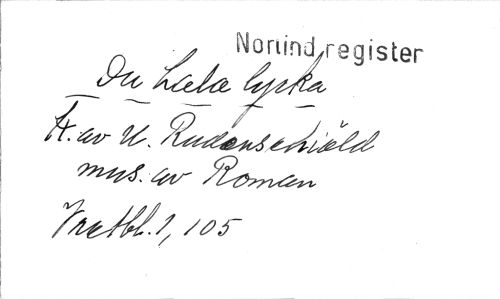 Norlind register
Du hela lycka
T. av U. Rudenschiöld
mus. av Roman
Vretbl. 1, 105